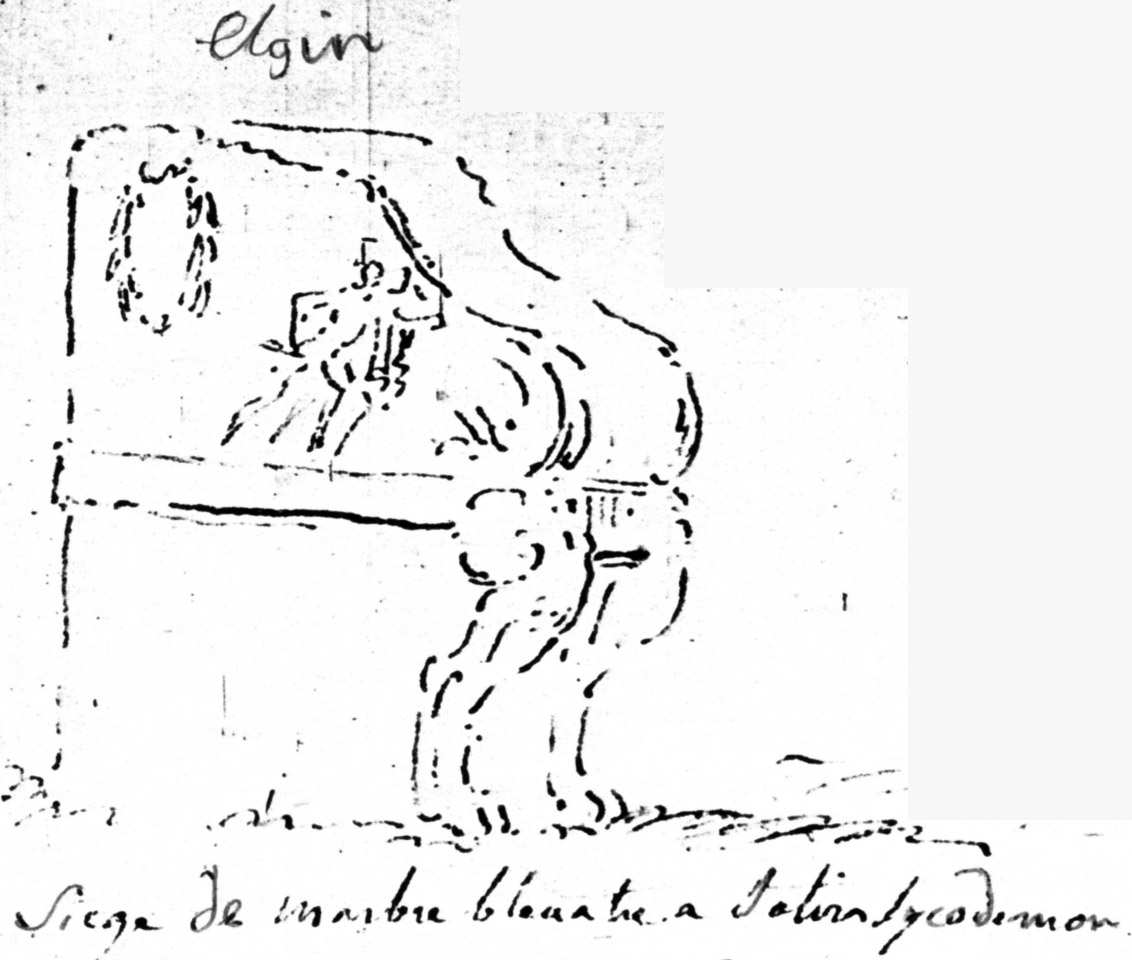 Elgin
Siege de marbre bleuatre a Sotira lycodimon